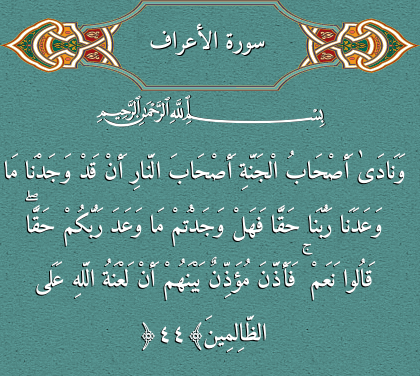 سورة الأعراف
بِسْمِ اللَّهِ الرَّحْمَنِ الرَّحِيمِ
وَنَادَىٰ أَصْحَابُ الْجَنَّةِ أَصْحَابَ النَّارِ أَنْ قَدْ وَجَدْنَا مَا
وَعَدَنَا رَبُّنَا حَقًّا فَهَلْ وَجَدْتُمْ مَا وَعَدَ رَبُّكُمْ حَقًّا ۖ
قَالُوا نَعَمْ ۚ فَأَذَّنَ مُؤَذِّنٌ بَيْنَهُمْ أَنْ لَعْنَةُ اللَّهِ عَلَى
الظَّالِمِينَ ﴿٤٤﴾